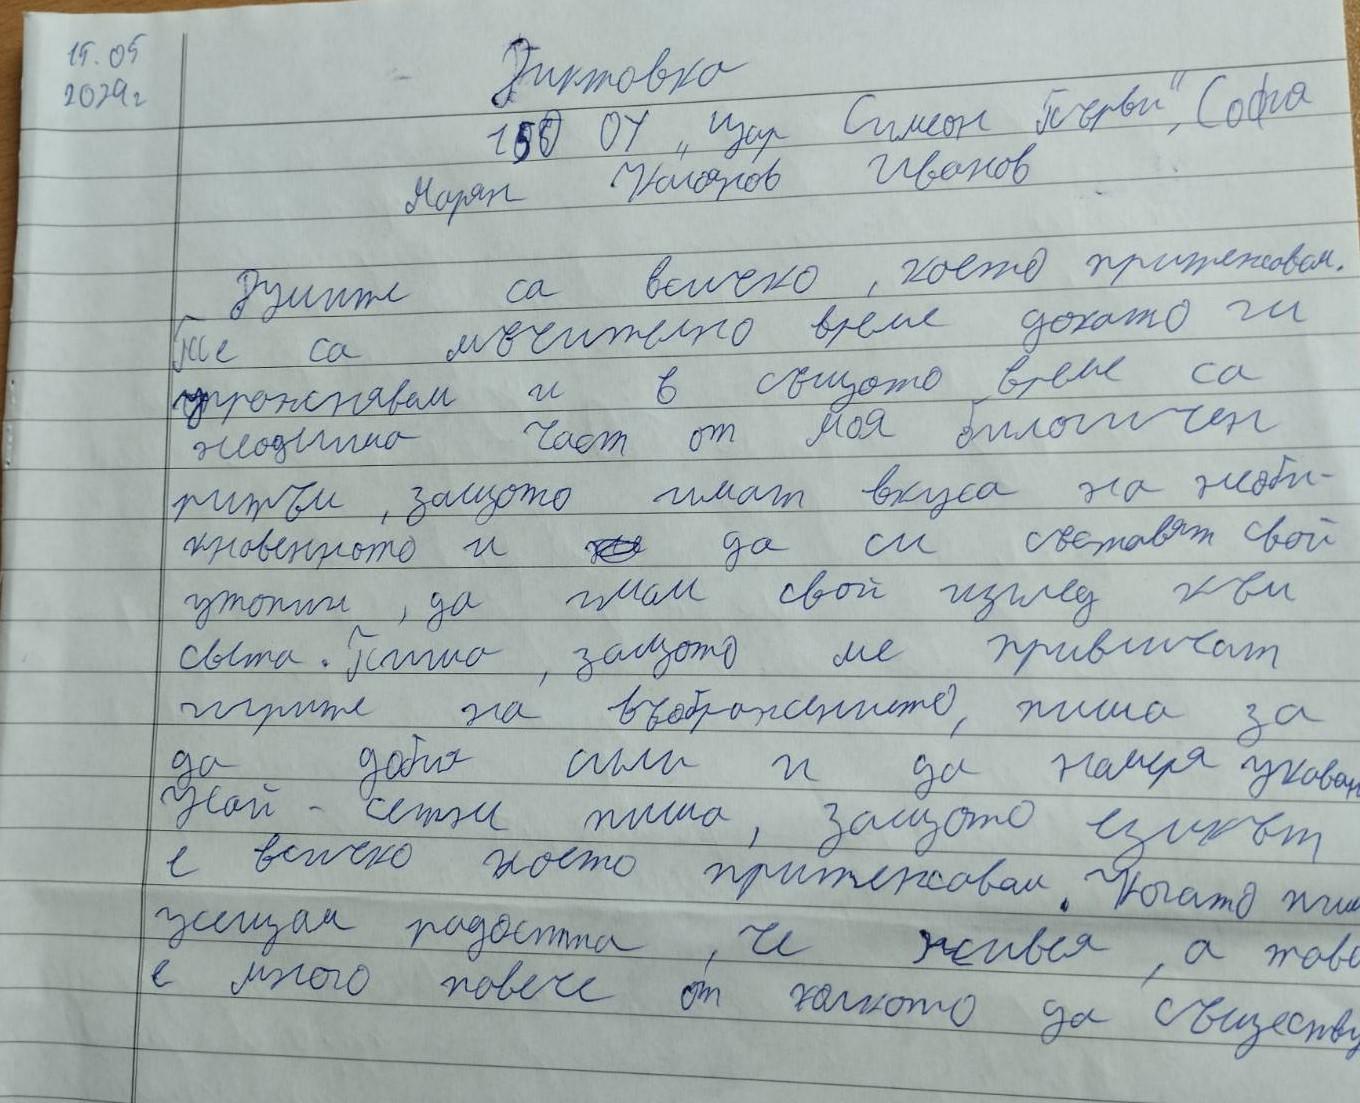 15.05
2024г
Диктовка
150 ОУ „Цар Симеон Първи", София
Марян Калоянов Иванов
Думите са всичко, което притежавам.
Те са мъчително време докато ги
упражнявам и в същото време са
неодимна част от моя биологичен
ритъм, защото имат вкуса на необи-
кновенното и да си съставят свой
утопии, да имам свой изглед към
света. Пиша, защото ме привличат
игрите на въображението, пиша за
да добия сили и да намеря укован
Най-сетне пиша, защото езикът
е всичко което притежавам. Когато пиш
усещам радостта, че живея, а това
е много повече от колкото да съществу